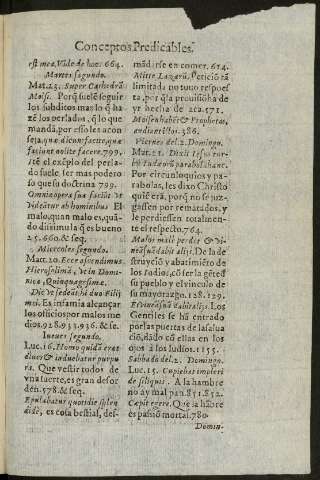 Conceptos Predicables.
est mea. Vide de hoc. 664.
Martes segundo.
Mat. 23. Super Cathedrā
Moisi. Porq̃ suelē seguir
los subditos mas lo q̃ ha
zē los perlados, q̃ lo que
mandā, por esso les acon
seja, quæ dicunt facite, quæ
faciunt nolite facere. 799.
Itē el exēplo del perla-
do suele ser mas podero
so que su dotrina 799.
Omnia opera sua faciūt vt
videātur ab hominibus El
malo, quan malo es, quā-
do dissimula q̃ es bueno
25. 660. & seq.
Miercoles segundo.
Matt. 20. Ecce ascendimus
Hierosolimã, vt in Domi-
nica, Quinquagesimæ.
Dic vt sedeāt hi duo Filij
mei. Es infamia alcançar
los officios por malos me
dios. 928. 933. 936. &c.
Iueues segundo.
Luc. 16. Homo quidā erat
diues & induebatur purpu
ra. Que vestir todos de
vna suerte, es gran desor
dēn. 578. & seq.
Epulabatur quotidie splen
didè, es cosa bestial, des-
mādarse en comer. 614.
Mitte Lazarū. Peticiō tā
limitada no tuuo respues
ta, por q̃ la prouisiō ha de
yr hecha de aca. 571.
Moisen habēt & Prophetas,
audiant illos. 386.
Viernes del. 2. Domingo.
Mat. 21. Dixit Iesus tur-
bis Iudæorū parabolā hanc.
Por circunloquios y pa-
rabolas, les dixo Christo
quiē era, porq̃ no se juz-
gassen por rematados, y
le perdiessen totalmen-
te el respeto. 764.
Malos malè perdet & vi-
neā suā dabit alijs. De la de
struyciō y abatimiēto de
los Iudios, cō ser la gēte d̃
su pueblo y el vinculo de
su mayorazgo. 128. 129.
Et vineā suā dabit alijs. Los
Gentiles se hā entrado
por las puertas de la salua
ciō, dādo cō ellas en los
ojos a los Iudios. 1155.
Sabbado del. 2. Domingo.
Luc. 15. Cupiebat impleri
de siliquis. A la hambre
no ay mal pan. 851. 852.
Cœpit egere. Que la hābre
es passiō mortal. 780.
Domin-